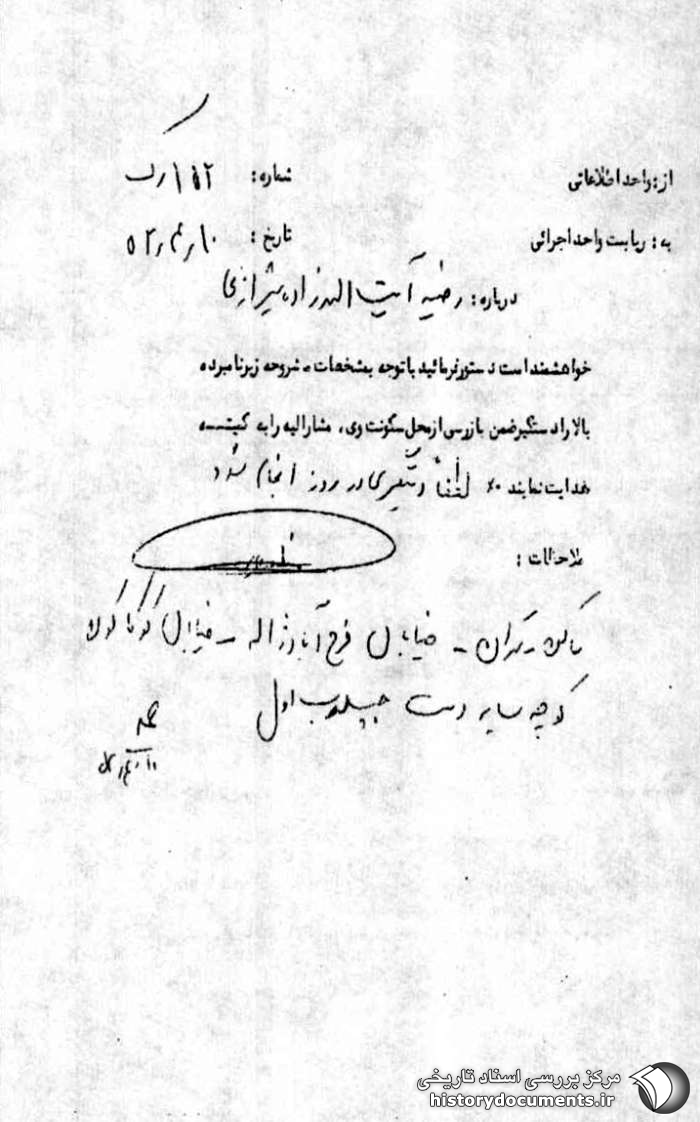 از: واحد اطلاعاتی شماره: ۱۵۲/ک
به: ریاست واحد اجرائی تاریخ: ۱۰/۴/۵۲
درباره: رضیه آیت اله زاده شیرازی
خواهشمند است دستور فرمائید با توجه به مشخصات مشروحه زیر نامبرده
بالا را دستگیر ضمن بازرسی از محل سکونت وی، مشارالیه را به کمیته
هدایت نمایند ٪ لطفاً دستگیری در روز انجام شود
ملاحظات:
ساکن تهران - خیابان فرح آباد ژاله - خیابان کوکاکولا
کوچه سایه دست چپ درب اول
مرکز بررسی اسناد تاریخی
historydocuments.ir